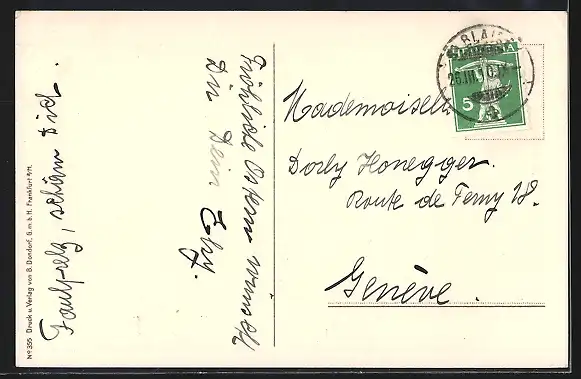 Fröhliche Ostern wünscht
Dir Dein
Faulpelz, schäm Dich.
Mademoiselle
Dorly Honegger.
Route de Ferny 18.
Genève.
HELVETIA
5
26.III.10.
No 355 Druck u. Verlag von B. Dondorf, G.m.b.H. Frankfurt a/M.